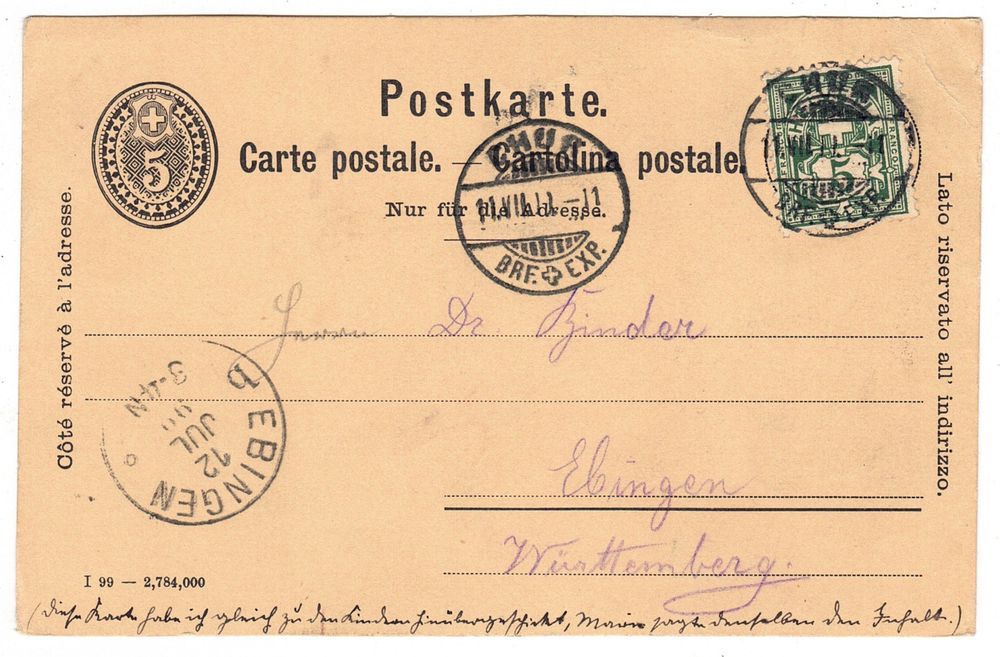 Postkarte.
Carte postale. — Cartolina postale.
Nur für die Adresse.
5
CHUR
11.VII. –11
BRF. EXP.
FRANCO
5
Côté réservé à l'adresse.
Lato riservato all' indirizzo.
Herrn Dr Binder
Ebingen
Württemberg.
EBINGEN
12
JUL
99
3-4N
b
I 99 — 2,784,000
(diese Karte habe ich gleich zu den Kindern hinübergeschickt, Marie sagte denselben den Inhalt.)